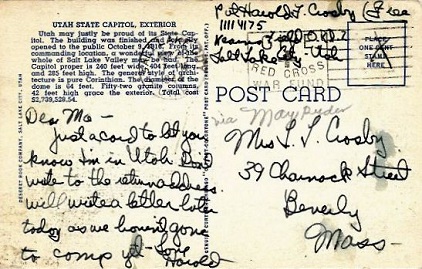 UTAH STATE CAPITOL, EXTERIOR
Utah may justly be proud of its State Capitol. The building was finished and formally
opened to the public October 9, 1916. From its
commanding location, a wonderful view of the
whole of Salt Lake Valley may be had. The
Capitol proper is 240 feet wide, 404 feet long
and 285 feet high. The general style of architecture is pure Corinthian. The diameter of the
dome is 64 feet. Fifty-two granite columns,
42 feet high grace the exterior. (Total cost
$2,739,528.54.
DESERET BOOK COMPANY, SALT LAKE CITY, UTAH
Pvt Harold L. Crosby Free
11114175
Kearns Field
Salt Lake City Utah
RED CROSS
WAR FUND
PLACE
ONE CENT
STAMP
HERE
POST CARD
via May Ryder
Dear Ma -
Just a card to let you
know I'm in Utah. Dont
write to the return address.
will write a letter later
today as we haven't gone
to camp yet - Love
Harold
Mrs L. L. Crosby
39 Charnock Street
Beverly
Mass -